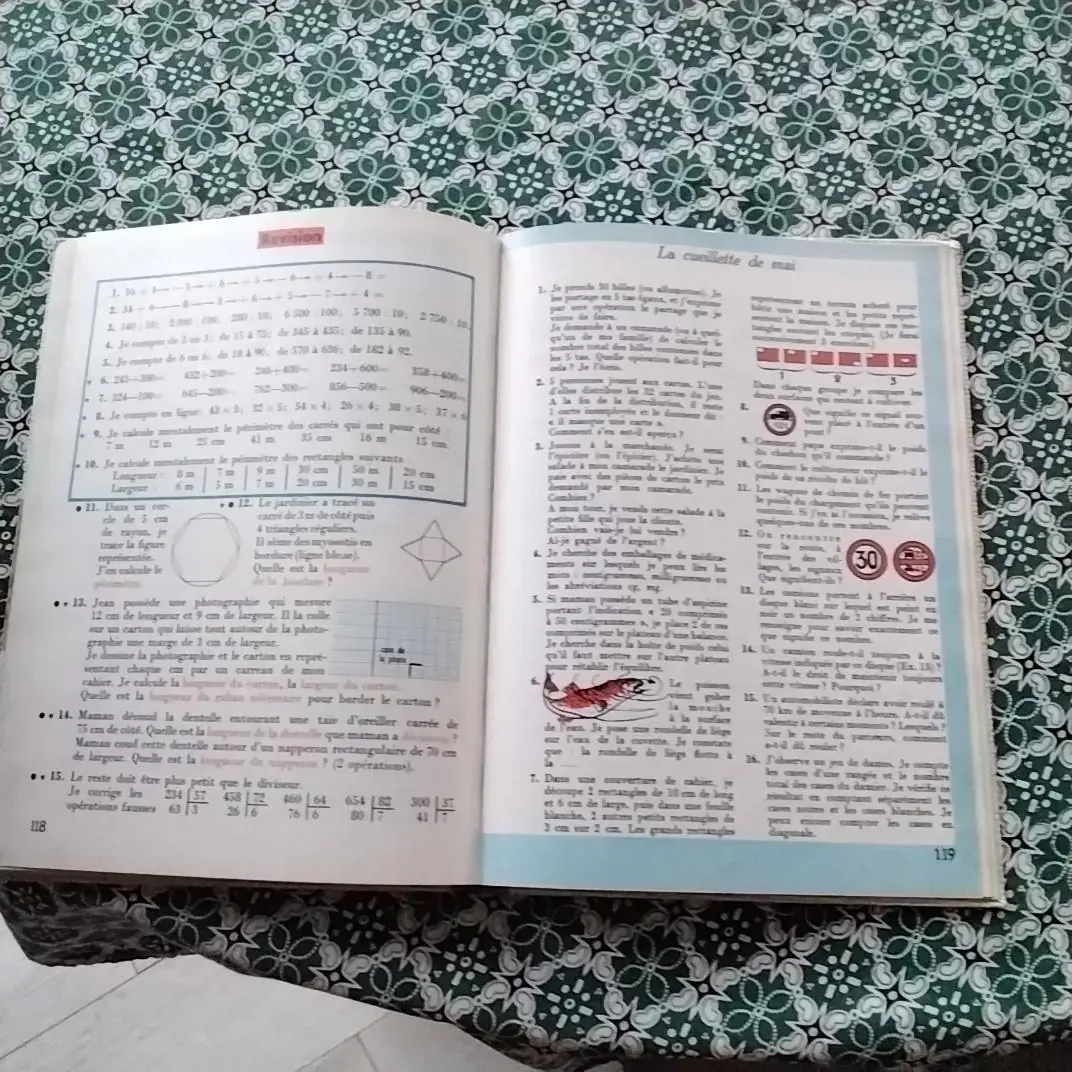 Revision
3. 140 : 10; 2 800 : 100; 280 : 10; 6 500 : 100; 5 700 : 10; 2 750 : 10
4. Je compte de 3 en 3; de 15 à 75; de 345 à 435; de 135 à 90.
5. Je compte de 6 en 6; de 18 à 96; de 570 à 636; de 182 à 92.
6. 245—300= 432+200= 246+400= 234+600= 358+400=
7. 324—100= 645—200= 762—300= 856—500= 906—200=
8. Je compte en ligne: 43 × 3; 32 × 5; 54 × 4; 26 × 4; 38 × 5; 37 × 6
9. Je calcule mentalement le périmètre des carrés qui ont pour côté :
7 m 12 m 25 cm 41 m 35 cm 16 m 15 cm.
10. Je calcule mentalement le périmètre des rectangles suivants :
Longueur : 8 m 7 m 9 m 30 cm 50 m 20 cm
Largeur : 6 m 5 m 7 m 20 cm 30 m 15 cm
11. Dans un cer-
cle de 5 cm
de rayon, je
trace la figure
représentée.
J'en calcule le
périmètre.
12. Le jardinier a tracé un
carré de 3 m de côté puis
4 triangles réguliers.
Il sème des myosotis en
bordure (ligne bleue).
Quelle est la longueur
de la bordure ?
13. Jean possède une photographie qui mesure
12 cm de longueur et 9 cm de largeur. Il la colle
sur un carton qui laisse tout autour de la photo-
graphie une marge de 3 cm de largeur.
Je dessine la photographie et le carton en repré-
sentant chaque cm par un carreau de mon
cahier. Je calcule la longueur du carton, la largeur du carton.
Quelle est la longueur du ruban nécessaire pour border le carton ?
coin de
la photo
14. Maman découd la dentelle entourant une taie d'oreiller carrée de
75 cm de côté. Quelle est la longueur de la dentelle que maman a décousue ?
Maman coud cette dentelle autour d'un napperon rectangulaire de 70 cm
de largeur. Quelle est la longueur du napperon ? (2 opérations).
15. Le reste doit être plus petit que le diviseur.
Je corrige les
opérations fausses
234 57 458 72 460 64 654 82 300 37
63 3 26 6 76 6 80 7 41 7
118
La cueillette de mai
1. Je prends 30 billes (ou allumettes). Je
les partage en 5 tas égaux, et j'exprime
par une opération le partage que je
viens de faire.
Je demande à un camarade (ou à quel-
qu'un de ma famille) de calculer le
nombre total des billes contenues dans
les 5 tas. Quelle opération fait-il pour
cela ? Je l'écris.
2. 5 personnes jouent aux cartes. L'une
d'elles distribue les 32 cartes du jeu.
A la fin de la distribution, il reste
1 carte inemployée et le donneur dit :
« il manque une carte ».
Comment s'en est-il aperçu ?
3. Jouons à la marchande. Je serai
l'épicière (ou l'épicier). J'achète une
salade à mon camarade le jardinier. Je
paie avec des pièces de carton le prix
demandé par mon camarade.
Combien ?
A mon tour, je vends cette salade à la
petite fille qui joue la cliente.
Combien vais-je lui vendre ?
Ai-je gagné de l'argent ?
4. Je cherche des emballages de médica-
ments sur lesquels je peux lire les
mots : centigrammes, milligrammes ou
les abréviations cg, mg.
5. Si maman possède un tube d'aspirine
portant l'indication « 20 comprimés
à 50 centigrammes », je place 2 de ces
comprimés sur le plateau d'une balance.
Je cherche dans la boîte de poids celui
qu'il faut mettre sur l'autre plateau
pour rétablir l'équilibre.
6. Le poisson
vient gober
la mouche
à la surface
de l'eau. Je pose une rondelle de liège
sur l'eau de la cuvette. Je constate
que : la rondelle de liège flotte à
la ....
7. Dans une couverture de cahier, je
découpe 2 rectangles de 10 cm de long
et 6 cm de large, puis dans une feuille
blanche, 2 autres petits rectangles de
3 cm sur 2 cm. Les grands rectangles
1 2 3
Dans chaque groupe je compare les
deux surfaces qui restent à cultiver.
8. Que signifie ce signal sou-
vent placé à l'entrée d'un
pont ?
9. Comment papa exprime-t-il le poids
du charbon qu'il consomme ?
10. Comment le meunier exprime-t-il le
poids de sa récolte de blé ?
11. Les wagons de chemin de fer portent
le poids du chargement qu'ils peuvent
12. On rencontre
sur la route, à
l'entrée des vil-
lages, les signaux
Que signifient-ils ?
30
13. Les camions portent à l'arrière un
disque blanc sur lequel est peint en
noir un nombre de 2 chiffres. Je me
renseigne pour savoir exactement ce
que signifie ce nombre.
14. Un camion roule-t-il toujours à la
vitesse indiquée par ce disque (Ex. 13) ?
A-t-il le droit de maintenir toujours
cette vitesse ? Pourquoi ?
15. Un automobiliste déclare avoir roulé à
70 km de moyenne à l'heure. A-t-il dû
ralentir à certains moments ? Lesquels ?
Sur le reste du parcours, comment
a-t-il dû rouler ?
16. J'observe un jeu de dames. Je compte
les cases d'une rangée et le nombre
total des cases du damier. Je vérifie ce
résultat en comptant séparément les
cases noires et les cases blanches. Je
peux encore compter les cases en
diagonale.
119